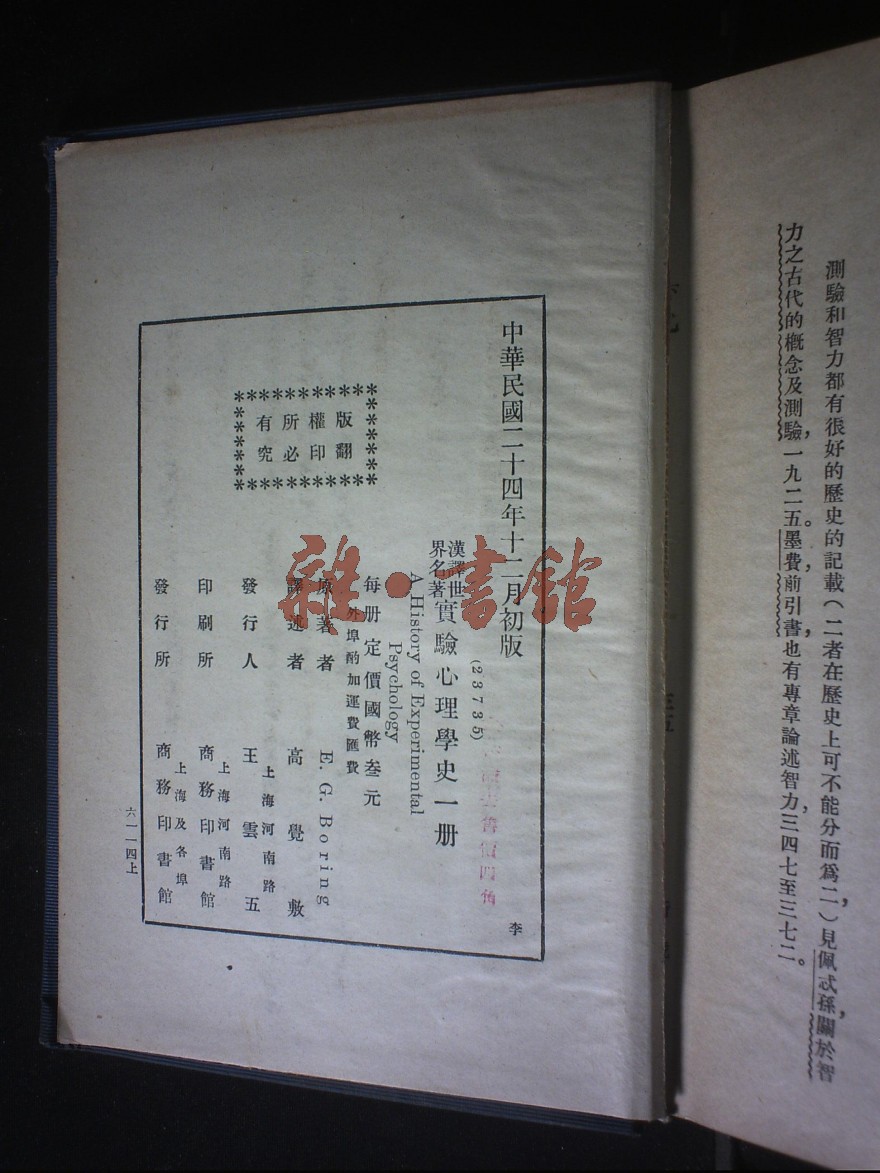 測驗和智力都有很好的歷史的記載(二者在歷史上可不能分而爲二,)見佩忒孫,關於智
力之古代的概念及測驗,一九二五。墨費,前引書,也有專章論述智力,三四七至三七二。
中華民國二十四年十二月初版
(23735)
漢譯世界名著 實驗心理學史一册
A History of Experimental
Psychology
每册定價國幣叁元
外埠酌加運費匯費
原著者 E. G. Boring
譯述者 高覺敷
發行人 王雲五
上海河南路
印刷所 商務印書館
上海河南路
發行所 商務印書館
上海及各埠
版權所有
翻印必究
李
六一一四上
雜·書館